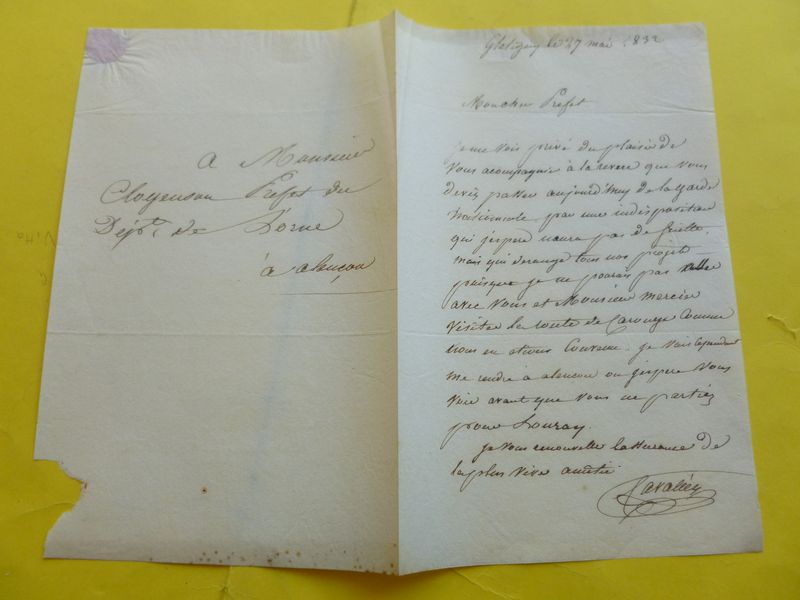 A Monsieur
Clogenson Prefet du
Dépt. de L'orne
à alençon
le 27 mai 1832
Monsieur Prefet
je me vois privé du plaisir de
vous acompagnier à la revue que vous
devés passer aujourd'huy de la garde
nationnale par une indisposition
qui j'espere naura pas de suitte,
mais qui derange tous nos projets
puisque je ne pourais pas aller
avec vous et Monsieur mercier
visiter la route de Carouge comme
nous en etions convenu. je vais cependant
me rendre à alencon ou j'espere vous
voir avant que vous ne partiéz
pour Lonray.
je vous renouvelle lassurance de
la plus vive amitié